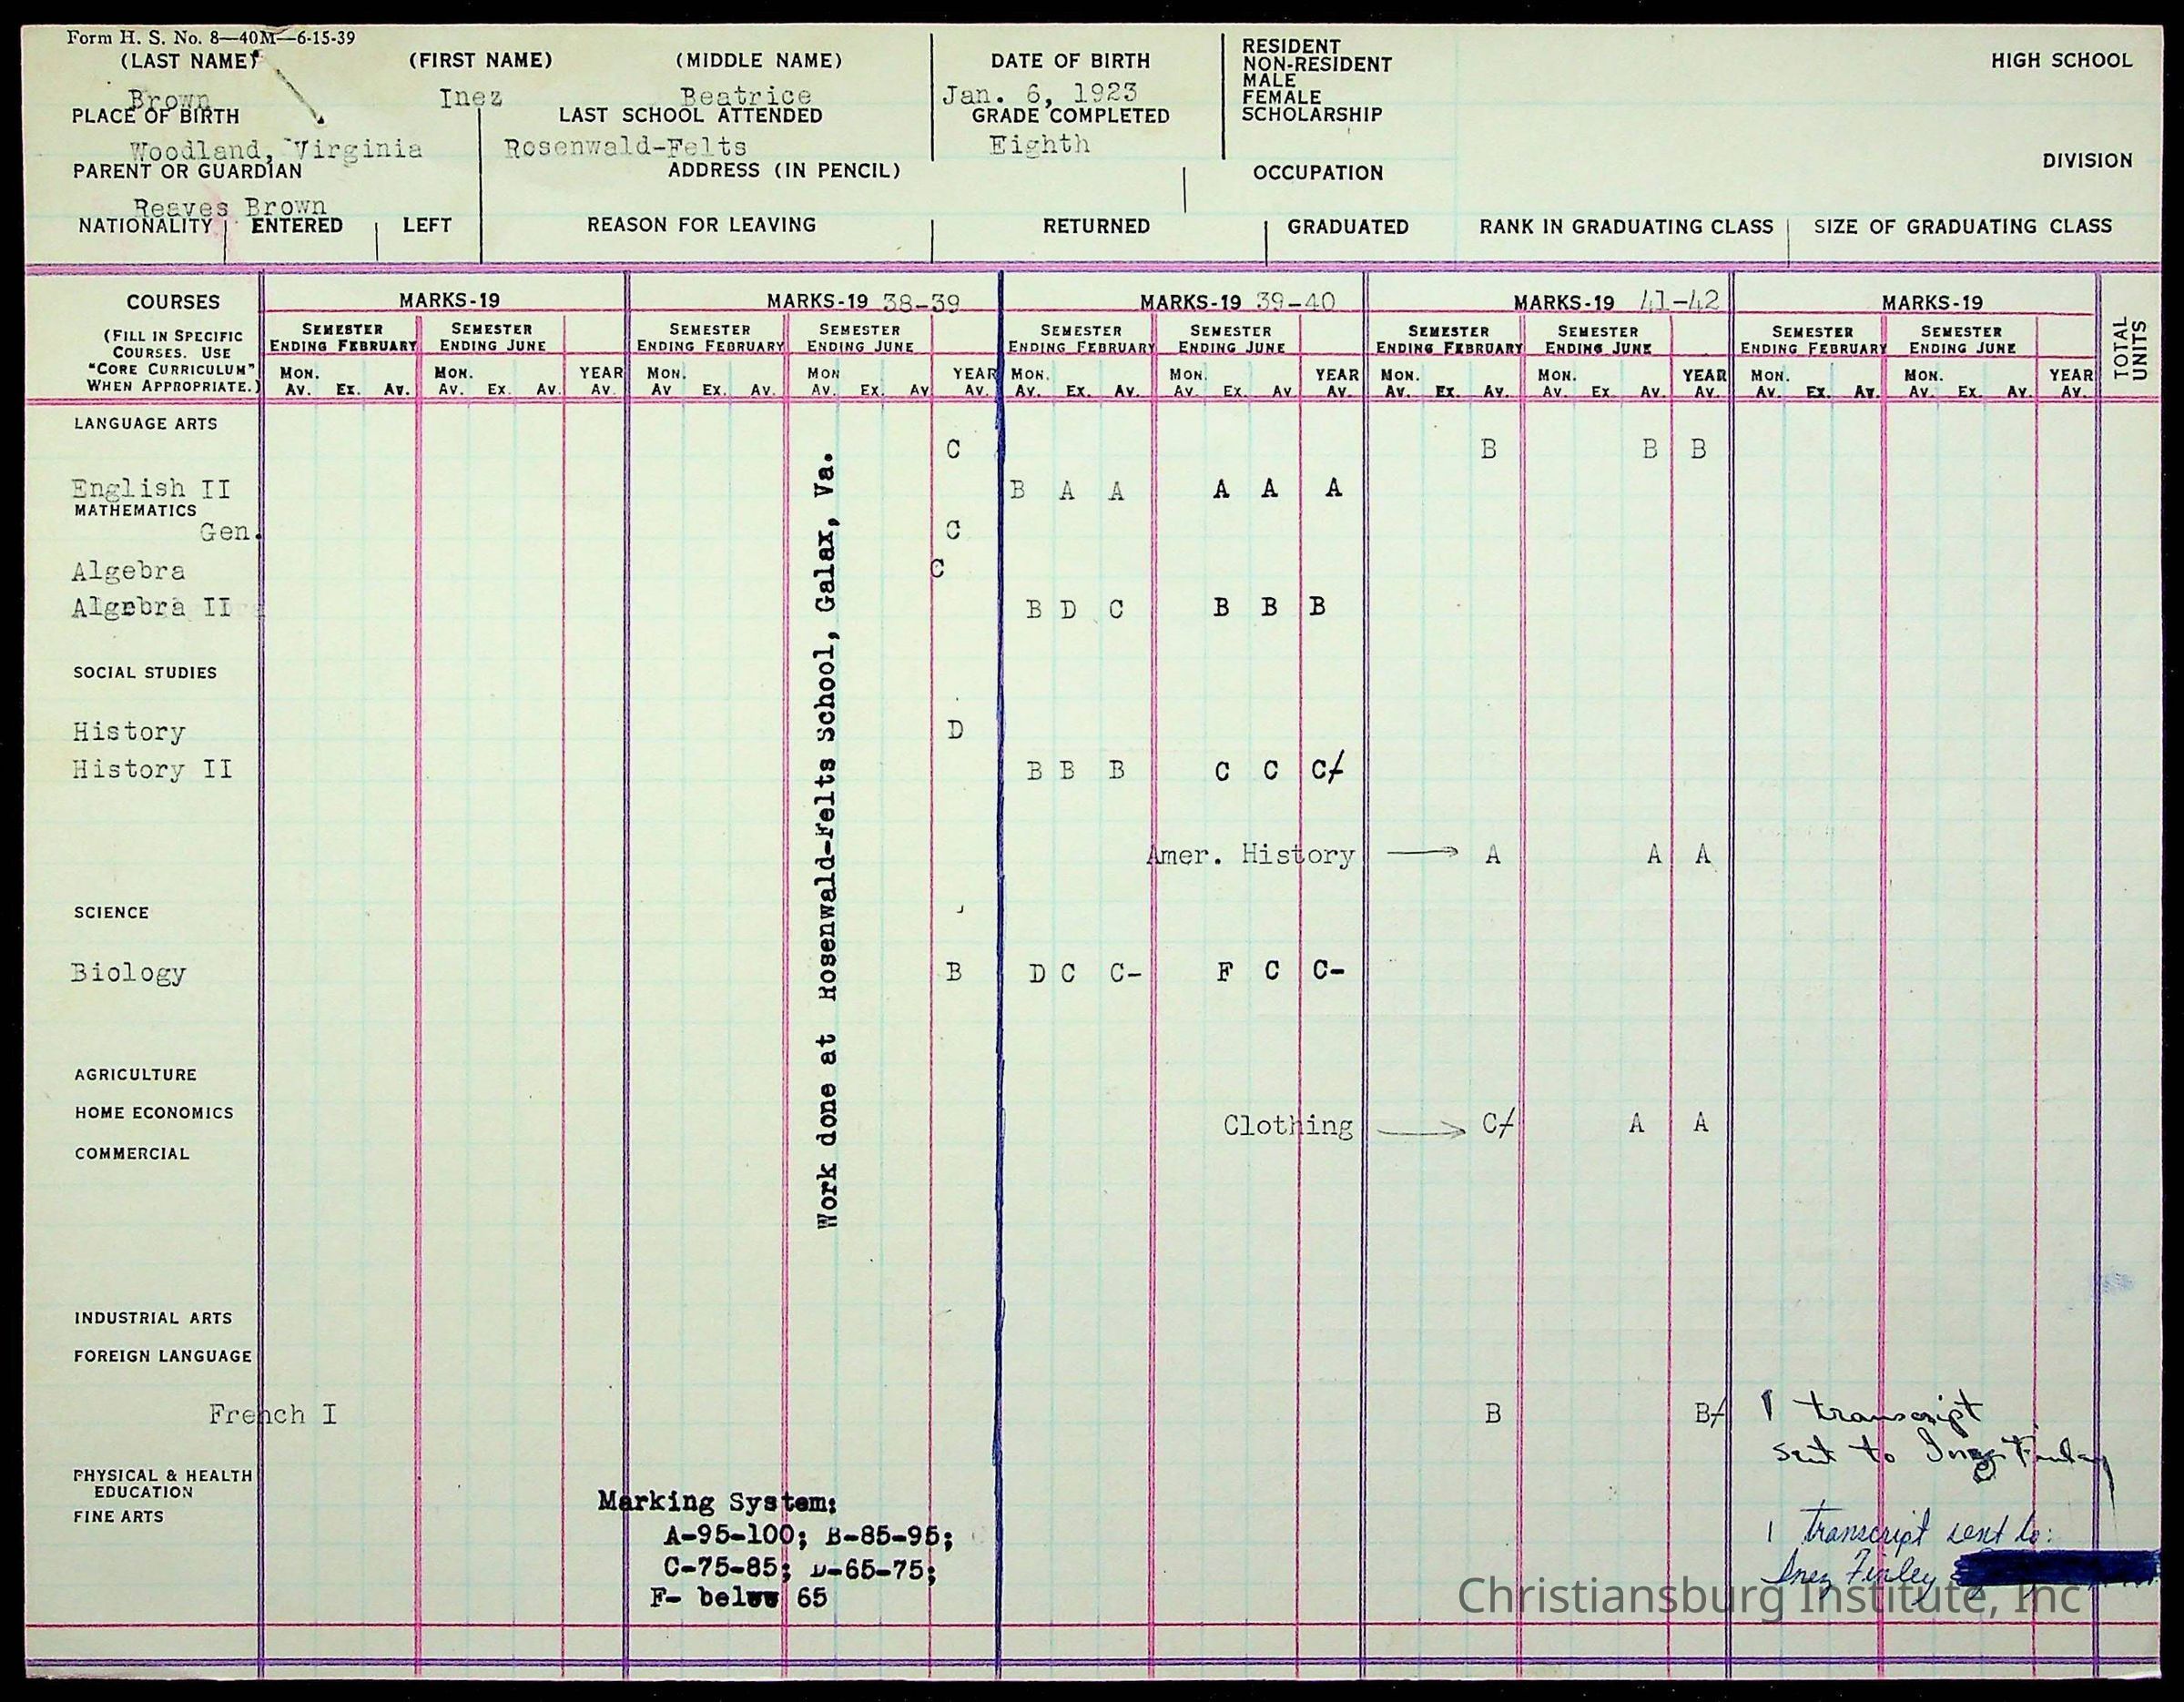 Form H. S. No. 8—40M—6-15-39
(LAST NAME) (FIRST NAME) (MIDDLE NAME) DATE OF BIRTH
Brown Inez Beatrice Jan. 6, 1923
RESIDENT
NON-RESIDENT
MALE
FEMALE
SCHOLARSHIP
HIGH SCHOOL
PLACE OF BIRTH LAST SCHOOL ATTENDED GRADE COMPLETED
Woodland, Virginia Rosenwald-Felts Eighth
DIVISION
PARENT OR GUARDIAN ADDRESS (IN PENCIL) OCCUPATION
Reaves Brown
NATIONALITY ENTERED LEFT REASON FOR LEAVING RETURNED GRADUATED RANK IN GRADUATING CLASS SIZE OF GRADUATING CLASS
COURSES MARKS-19 MARKS-19 38-39 MARKS-19 39-40 MARKS-19 41-42 MARKS-19
(FILL IN SPECIFIC
COURSES. USE
"CORE CURRICULUM"
WHEN APPROPRIATE.)
SEMESTER SEMESTER SEMESTER SEMESTER SEMESTER SEMESTER SEMESTER SEMESTER SEMESTER SEMESTER
ENDING FEBRUARY ENDING JUNE ENDING FEBRUARY ENDING JUNE ENDING FEBRUARY ENDING JUNE ENDING FEBRUARY ENDING JUNE ENDING FEBRUARY ENDING JUNE
TOTAL UNITS
MON. MON. YEAR MON. MON YEAR MON. MON. YEAR MON. MON. YEAR MON. MON. YEAR
AV. EX. AV. AV. EX. AV. AV. AV EX. AV. AV. EX. AV AV. AV. EX. AV. AV. EX. AV AV. AV. EX. AV. AV. EX. AV. AV. AV. EX. AV. AV. EX. AV. AV.
LANGUAGE ARTS
C B B B
English II B A A A A A
MATHEMATICS
Gen. C
Algebra C
Algebra II B D C B B B
SOCIAL STUDIES
History D
History II B B B C C C/
Amer. History → A A A
SCIENCE
Biology B D C C- F C C-
Work done at Rosenwald-Felts School, Galax, Va.
AGRICULTURE
HOME ECONOMICS
Clothing → C/ A A
COMMERCIAL
INDUSTRIAL ARTS
FOREIGN LANGUAGE
French I B B/
1 transcript
sent to Inez Finley
PHYSICAL & HEALTH
EDUCATION
FINE ARTS
Marking System:
A-95-100; B-85-95;
C-75-85; D-65-75;
F- below 65
1 transcript sent to:
Inez Finley
Christiansburg Institute, Inc